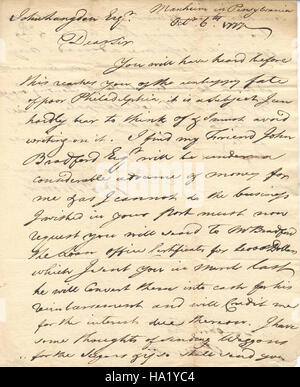 John Langdon Esqr.
Manheim in Pensylvania
Octr. 6th. 1777
Dear Sir
You will have heard before
this reaches you of the unhappy fate
of poor Philadelphia, it is a subject I can
hardly bear to think of & I must avoid
writing on it. I find my Friend John
Bradford Esqr. will be under a
considerable advance of money for
me & as I cannot do the business
I wished in your Port must now
request you will send to Mr Bradford
the Loan office Certificates for Dollars
which I sent you in March last
he will Convert them into cash for his
reimbursement and will Credit me
for the interest due thereon. I have
some thoughts of sending Waggons
for the & if so shall send you
alamy
HA1YC4